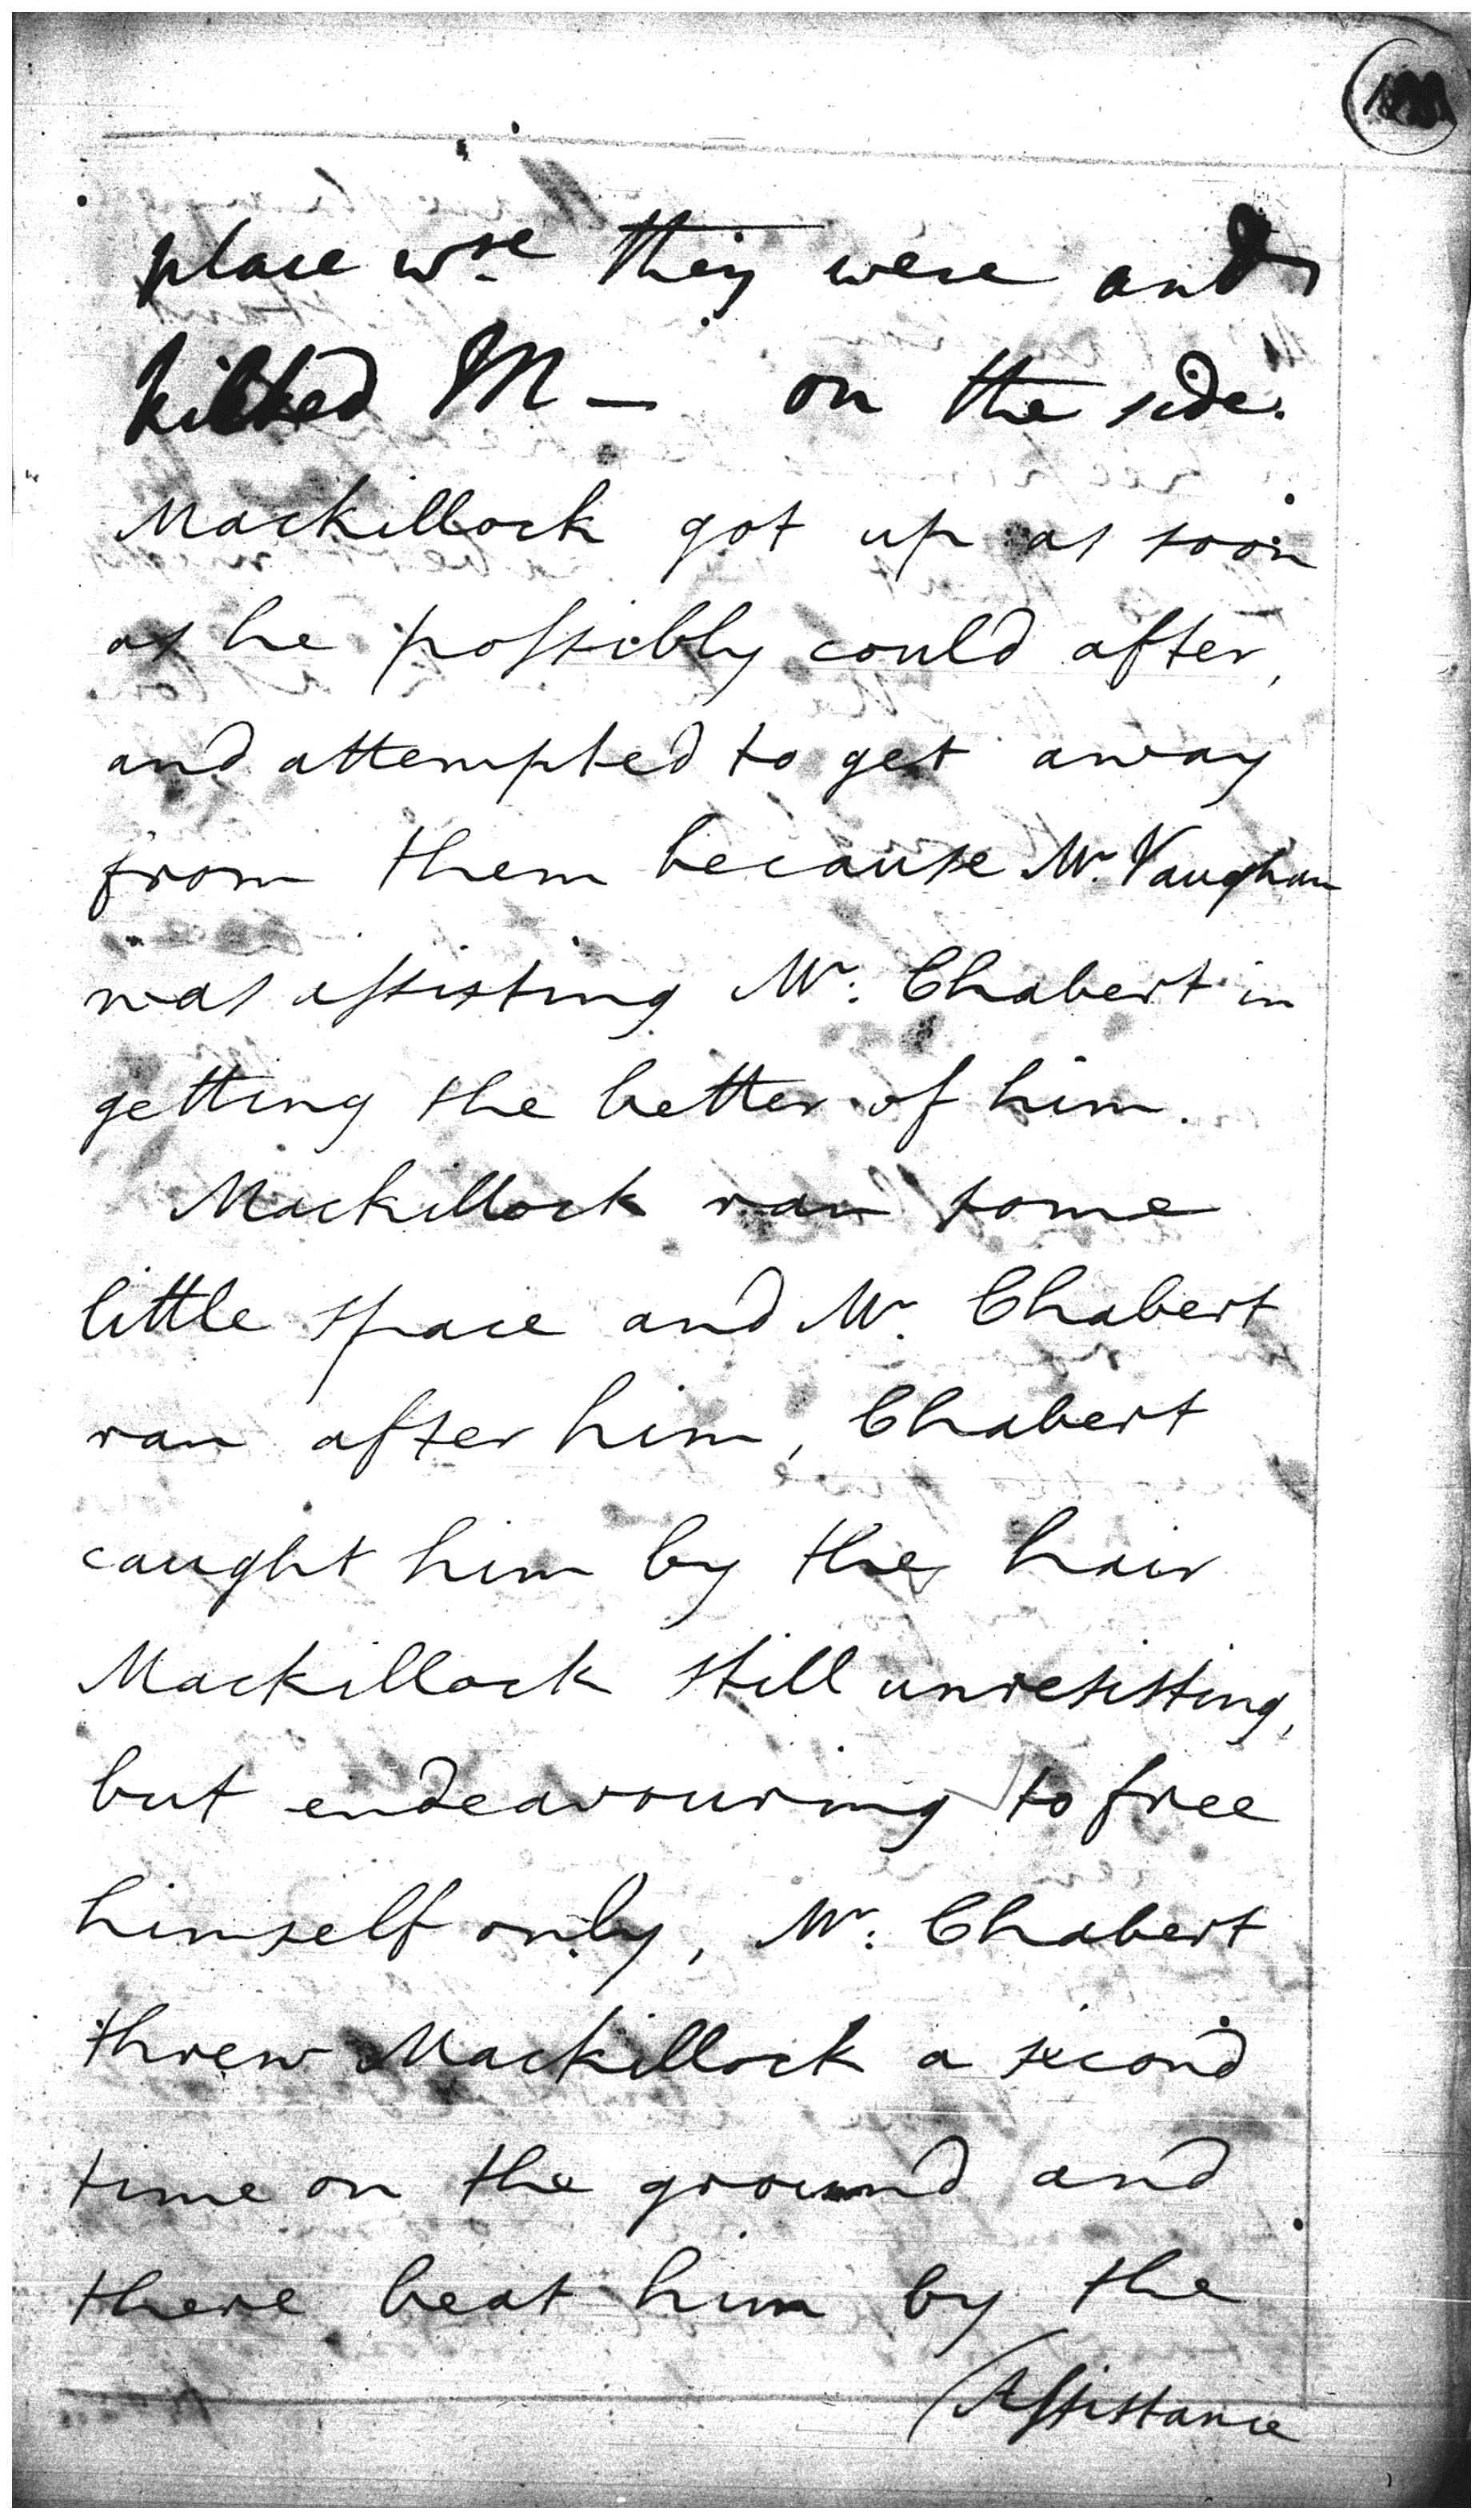 place wre they were and
kicked M — on the side.
Mackillock got up as soon
as he possibly could after,
and attempted to get away
from them because Mr. Vaughan
was assisting Mr. Chabert in
getting the better of him.
Mackillock ran some
little space and Mr. Chabert
ran after him, Chabert
caught him by the hair
Mackillock still unresisting,
but endeavouring to free
himself only, Mr. Chabert
threw Mackillock a second
time on the ground and
there beat him by the
/Assistance